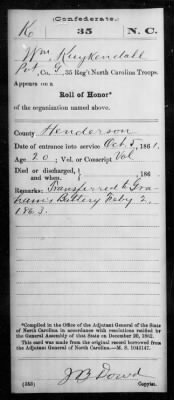 (Confederate.)
K 35 N. C.
Wm Kuykendall
Pvt, Co. G, 35 Reg't North Carolina Troops.
Appears on a
Roll of Honor*
of the organization named above.
County Henderson
Date of entrance into service Oct. 5, 1861.
Age 20; Vol. or Conscript Vol
Died or discharged, , 186 .
and when
Remarks: Transferred to Gra-
ham's Battery Feby 2,
1863.
*Compiled in the Office of the Adjutant General of the State
of North Carolina in accordance with resolutions ratified by
the General Assembly of that State on December 20, 1862.
This card was made from the original record borrowed from
the Adjutant General of North Carolina—M. S. 1043147.
J B Dowd
(353) Copyist.